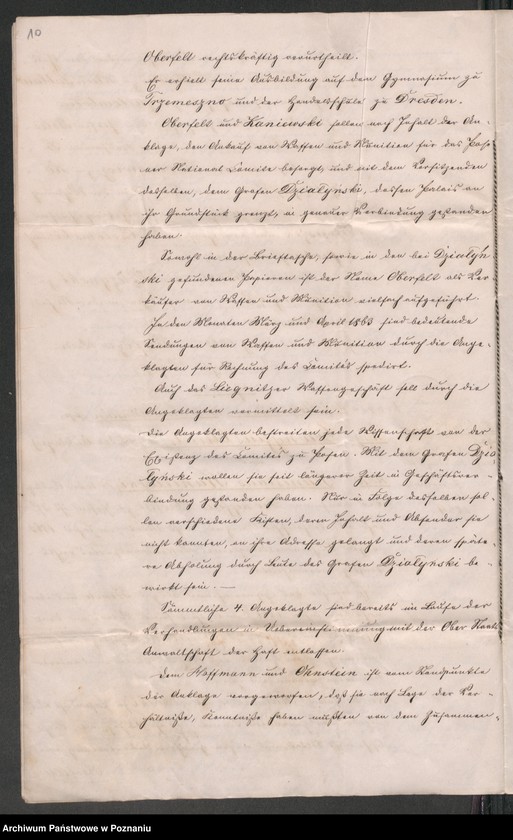 10
Oberfelt rechtskräftig verurtheilt.
Er erhielt seine Ausbildung auf dem Gymnasium zu
Trzemeszno und der Handelsschule zu Dresden.
Oberfelt und Kaniewski sollen nach Inhalt der An-
klage, den Ankauf von Waffen und Munition für das Pose-
ner National Comite besorgt, und mit dem Vorsitzenden
desselben, dem Grafen Działyński, dessen Palais an
ihr Grundstück grenzt, in genauer Verbindung gestanden
haben.
Sowohl in der Brieftasche, sowie in den bei Działyń-
ski gefundenen Papieren ist der Name Oberfelt als Ver-
käufer von Waffen und Munition vielfach aufgeführt.
In den Monaten März und April 1863 sind bedeutende
Sendungen von Waffen und Munition durch die Ange-
klagten für Rechnung des Comités spedirt.
Auch das Liegnitzer Waffengeschäft soll durch die
Angeklagten vermittelt sein.
Die Angeklagten bestreiten jede Wissenschaft von der
Existenz des Comites zu Posen. Mit dem Grafen Dzia-
łyński wollen sie seit längerer Zeit in Geschäftsver-
bindung gestanden haben. Nur in Folge desselben sol-
len verschiedene Kisten, deren Inhalt und Absender sie
nicht kannten, an ihre Adresse gelangt und deren späte-
re Abholung durch Leute des Grafen Działyński be-
wirkt sein. —
Sämmtliche 4 Angeklagte sind bereits im Laufe der
Verhandlungen in Uebereinstimmung mit der Ober Staats
Anwaltschaft der Haft entlassen.
Dem Hoffmann und Ohnstein ist vom Standpunkte
der Anklage vorgeworfen, daß sie nach Lage der Ver-
hältniße, Kenntniße haben mußten von dem Zusammen-
Archiwum Państwowe w Poznaniu